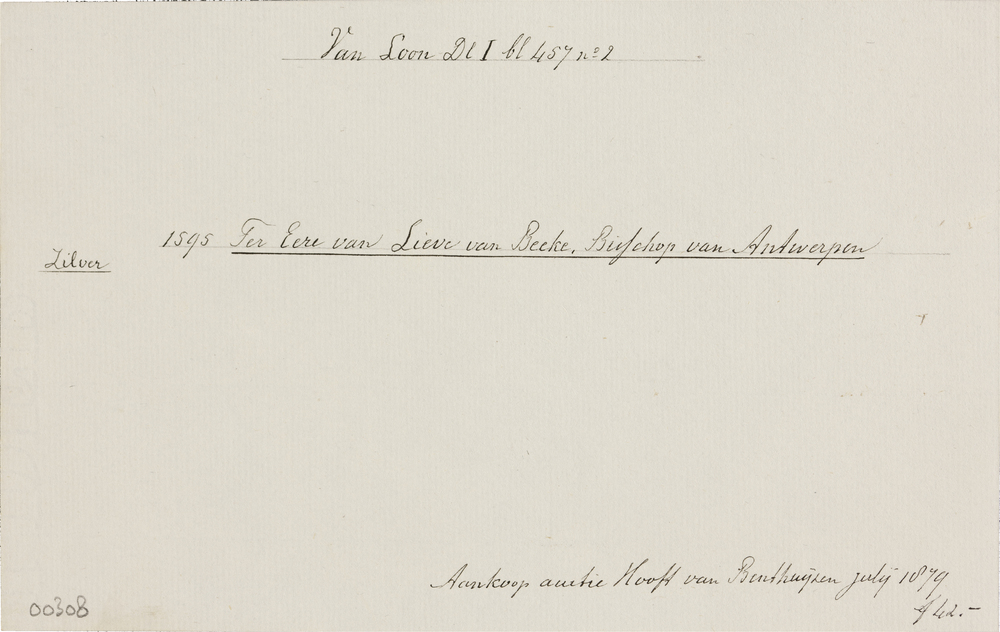 Van Loon Dl I bl 457 no 2
1595 Ter Eere van Lieve van Beeke, Bisschop van Antwerpen
Zilver
Aankoop auctie Hooft van Benthuijzen julij 1879
f 42.-
00308